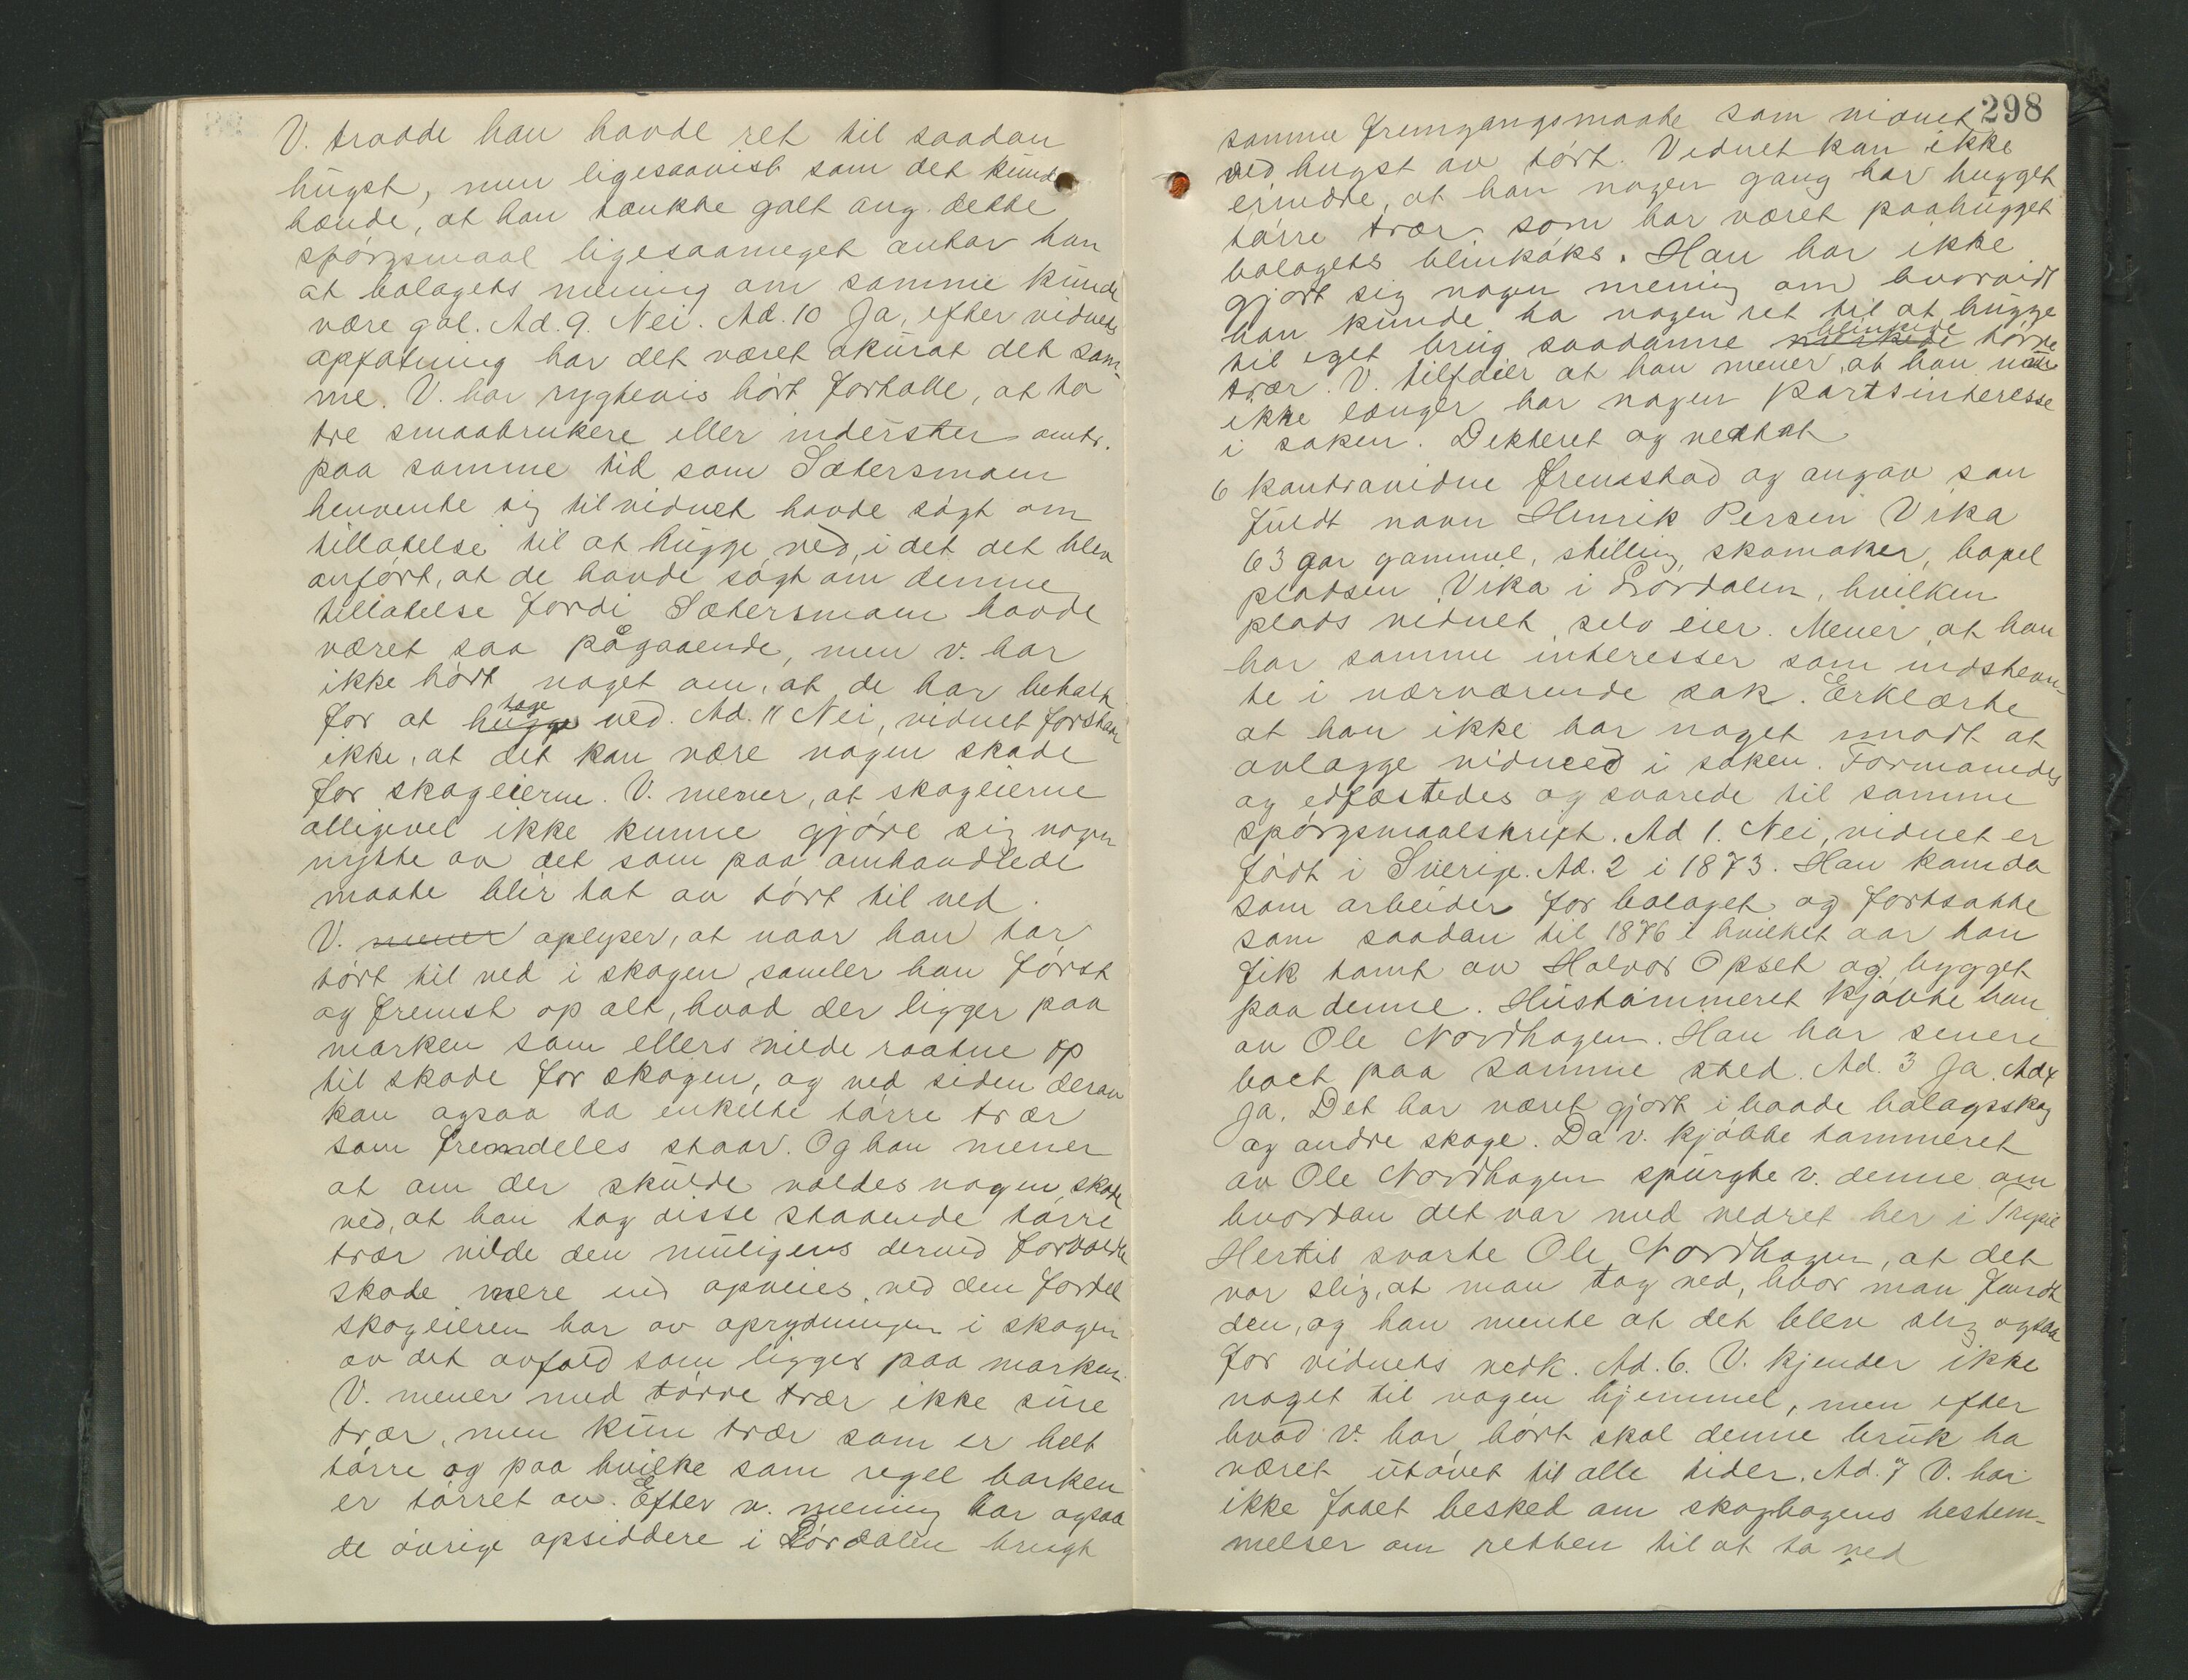 V. trodde han havde ret til saadan
hugst, men ligesaavist som det kunde
hænde, at han tænkte galt ang. dette
spørgsmaal ligesaameget antar han
at bolagets mening om samme kunde
være gal. Ad. 9. Nei. Ad. 10 Ja, efter vidnets
opfatning har det været akurat det sam-
me. V. har rygtevis hørt fortalle, at to
tre smaabrukere eller inderster omtr.
paa samme tid som Sætersmoen
henvente sig til vidnet havde søgt om
tillatelse til at hugge ved, i det det blev
anført, at de havde søgt om denne
tillatelse fordi Sætersmoen havde
været saa pågaaende, men v. har
ikke hørt noget om, at de har betalt
for at hugge tage ved. Ad. 11 Nei, vidnet forstaar
ikke, at det kan være nogen skade
for skogeierne. V. mener, at skogeierne
alligevel ikke kunne gjøre sig nogen
nytte av det som paa omhandlede
maate blir tat av tørt til ved.
V. mener oplyser, at naar han tar
tørt til ved i skogen samler han først
og fremst op alt, hvad der ligger paa
marken som ellers vilde raatne op
til skade for skogen, og ved siden derav
kan ogsaa ta enkelte tørre trær
som fremdeles staar. Og han mener
at om der skulde voldes nogen skade
ved, at han tog disse staaende tørre
trær vilde den muligens derved forvoldte
skade mere end opveies ved den fordel
skogeieren har av oprydningen i skogen
av det avfald som ligger paa marken.
V. mener med tørre trær ikke sure
trær, men kun trær som er helt
tørre og paa hvilke som regel barken
er tørret av. Efter v. mening har ogsaa
de øvrige opsiddere i Lørdalen brugt
298
samme fremgangsmaate som vidnet
ved hugst av tørt. Vidnet kan ikke
erindre, at han nogen gang har hugget
tørre trær som har været paahugget
bolagets blinkøks. Han har ikke
gjort sig nogen mening om hvorvidt
han kunde ha nogen ret til at hugge
til eget brug saadanne blinkede tørre
trær. V. tilføier at han mener, at han nu
ikke længer har nogen partsinteresse
i saken. Dekteret og vedtat
6 kontravidne fremstod og angav som
fuldt navn Henrik Persen Vika
63 aar gammel, stilling skomaker, bopel
pladsen Vika i Lørdalen, hvilken
plads vidnet selv eier. Mener, at han
har samme interesser som indstevn-
te i nærværende sak. Erklærte
at han ikke har noget imodt at
avlægge vidneed i saken. Formanedes
og edfæstedes og svarede til samme
spørgsmaalskrift. Ad 1. Nei, vidnet er
født i Sverige. Ad. 2 i 1873. Han kom da
som arbeider for bolaget og fortsatte
som saadan til 1876 i hvilket aar han
fik tomt av Halvor Opset og bygget
paa denne. Hustømmeret kjøbte han
av Ole Nordhagen. Han har senere
boet paa samme sted. Ad. 3 Ja. Ad 4
Ja. Det har været gjort i baade bolagsskog
og andre skoge. Da v. kjøbte tømmeret
av Ole Nordhagen spurgte v. denne om
hvordan det var med vedret her i Trysil
Hertil svarte Ole Nordhagen, at det
var slig, at man tog ved, hvor man fandt
den, og han mente at det blev slig ogsaa
for vidnets vedk. Ad. 6. V. kjender ikke
noget til nogen hjemmel, men efter
hvad v. har hørt skal denne bruk ha
været utøvet til alle tider. Ad. 7 V. har
ikke faaet besked om skoglagens bestem-
melser om retten til at ta ved